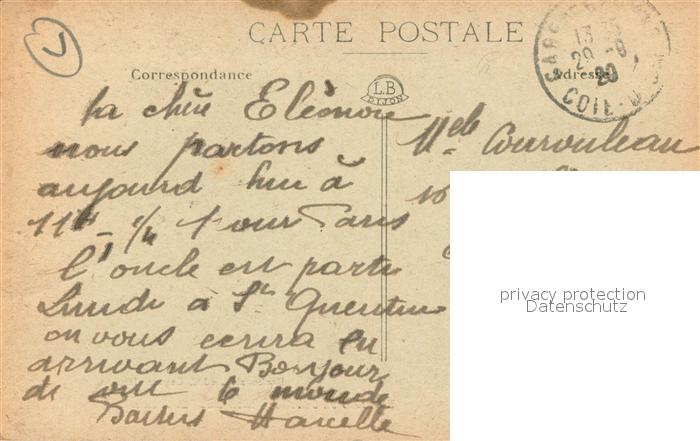 CARTE POSTALE
Correspondance
Adresse
L.B
DIJON
13
29 -8
20
COTE-D'
Ma chère Eléonore
nous partons
aujourd hui à
11h 1/4 pour Paris
l'oncle est partu
Lundi a St Quentin
on vous ecrira en
arrivant Bonjour
de tout le monde
Baisers Marcelle
Melle
10
privacy protection
Datenschutz